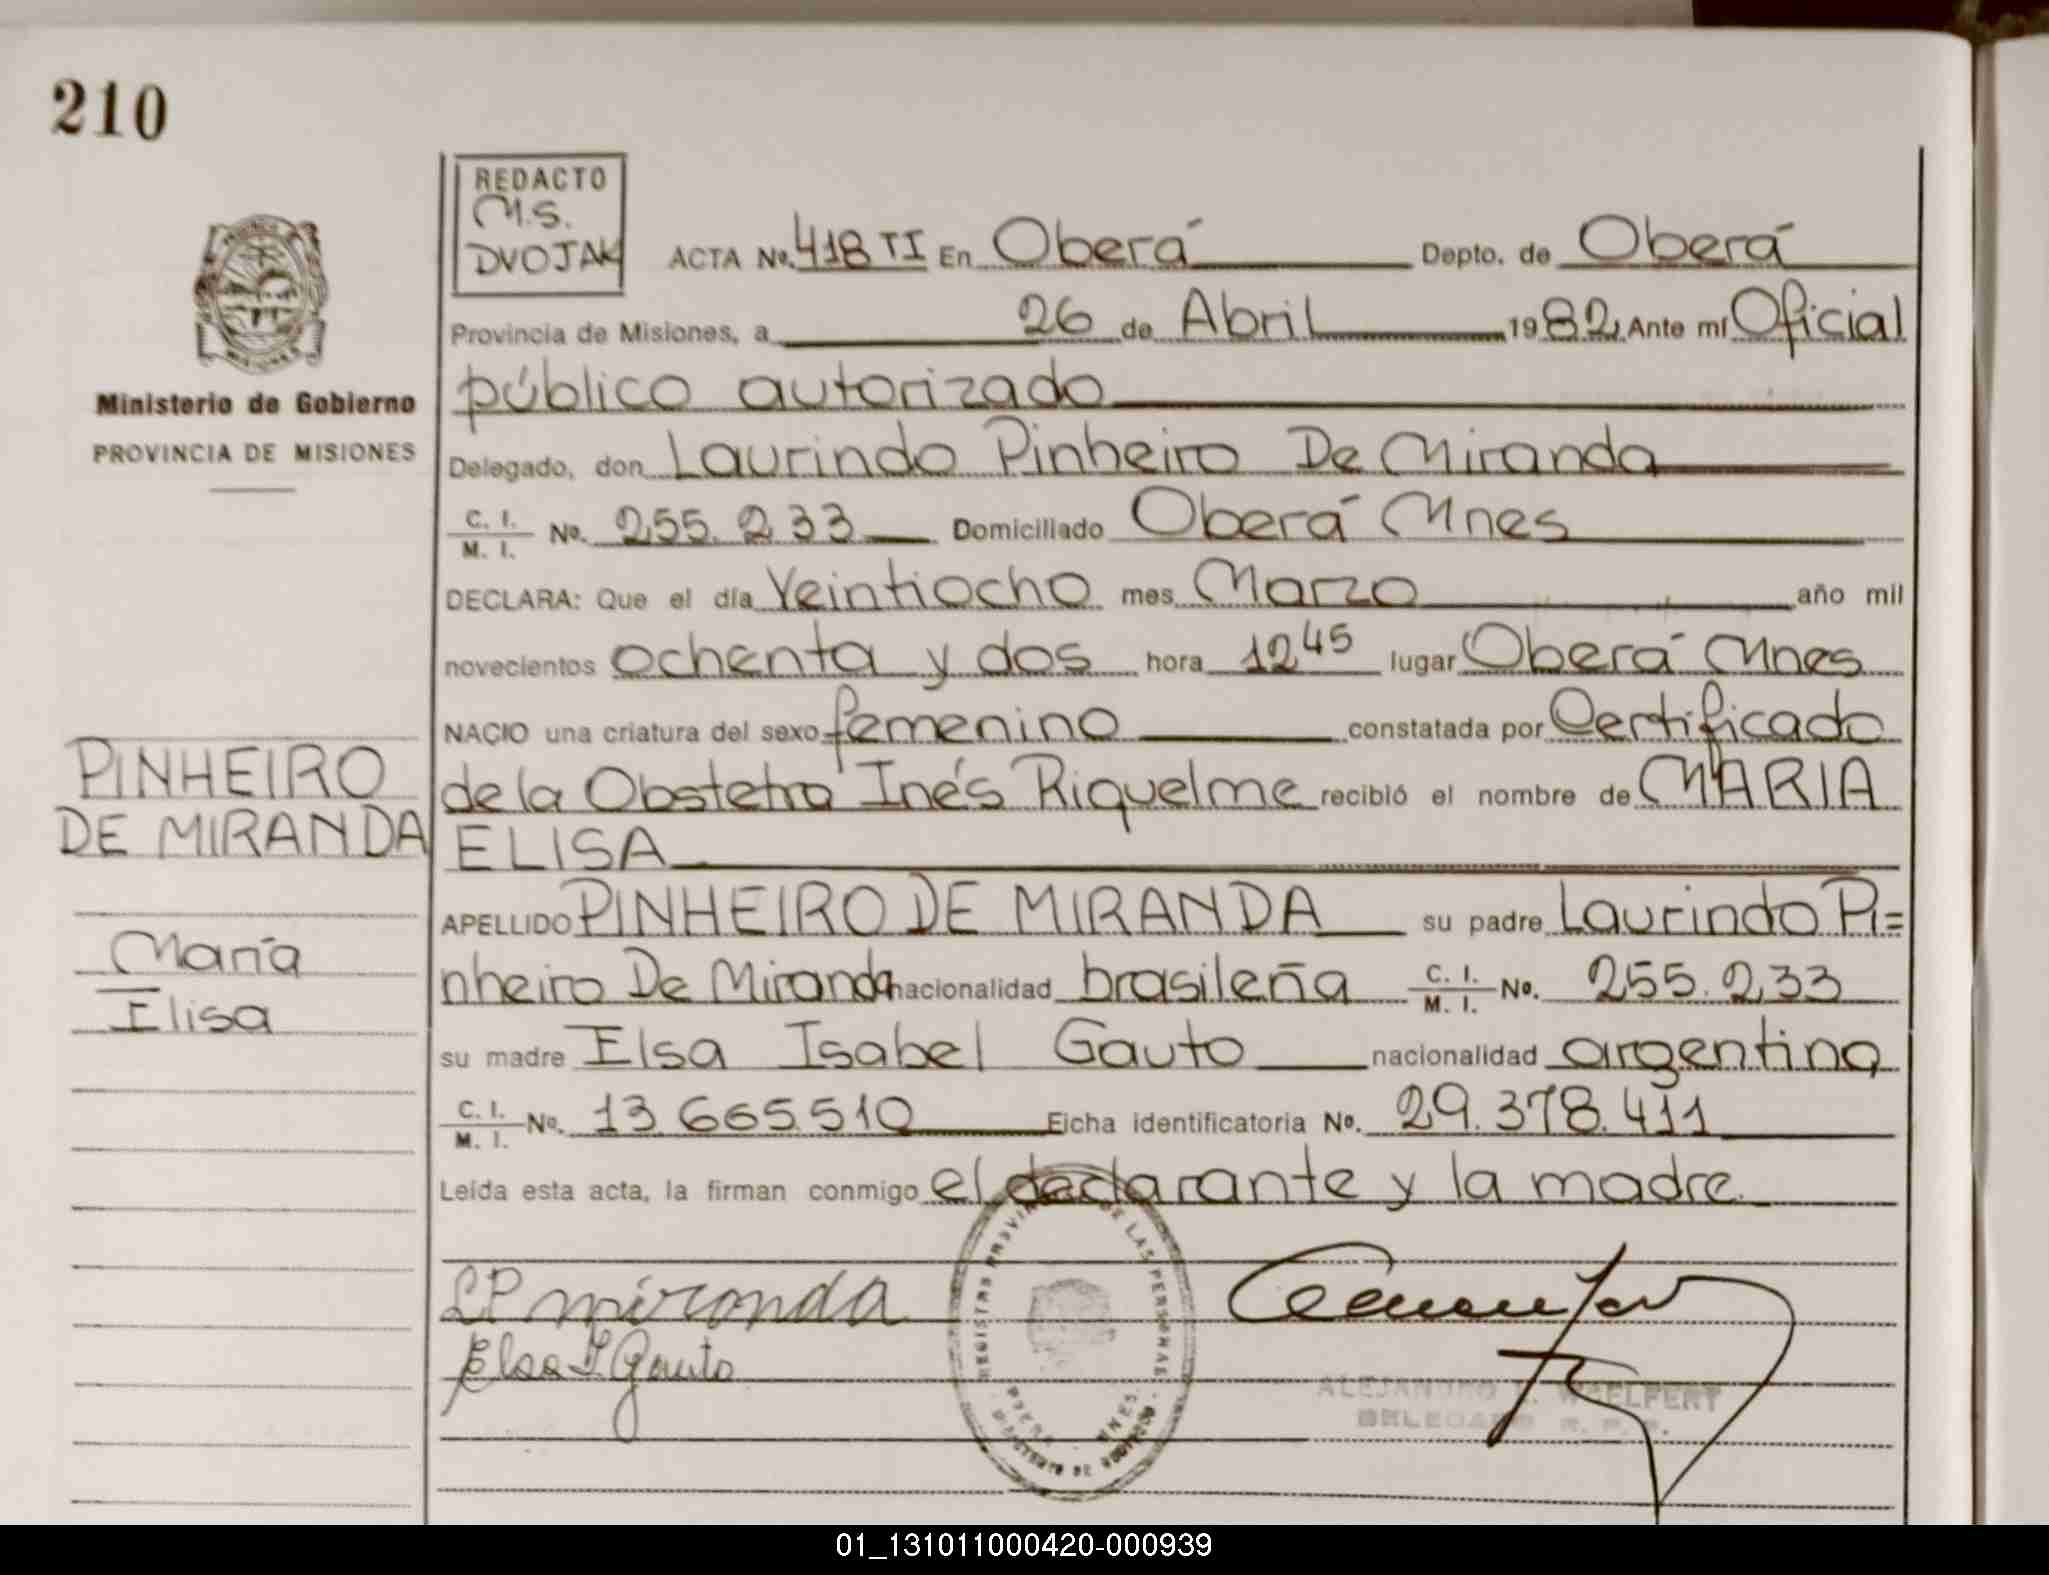 210
REDACTO
M.S.
DVOJAK
ACTA No. 418 TI En Oberá Depto. de Oberá
Provincia de Misiones, a 26 de Abril 1982 Ante mí Oficial
Ministerio de Gobierno
público autorizado
PROVINCIA DE MISIONES
Delegado, don Laurindo Pinheiro De Miranda
C. I.
M. I. No. 255.233 Domiciliado Oberá Mnes
DECLARA: Que el día Veintiocho mes Marzo año mil
novecientos ochenta y dos hora 12 45 lugar Oberá Mnes
NACIO una criatura del sexo femenino constatada por Certificado
PINHEIRO
de la Obstetra Inés Riquelme recibió el nombre de MARIA
DE MIRANDA
ELISA
APELLIDO PINHEIRO DE MIRANDA su padre Laurindo Pi=
María
nheiro De Miranda nacionalidad brasileña C. I. M. I. No. 255.233
Elisa
su madre Elsa Isabel Gauto nacionalidad argentina
C. I.
M. I. No. 13.665.510 Ficha identificatoria No. 29.378.411
Leída esta acta, la firman conmigo el declarante y la madre
LP miranda
Elsa I. Gauto
REGISTRO PROVINCIAL DE LAS PERSONAS
ALEJANDRO WOELFERT
DELEGADO R. P. P.
01_131011000420-000939